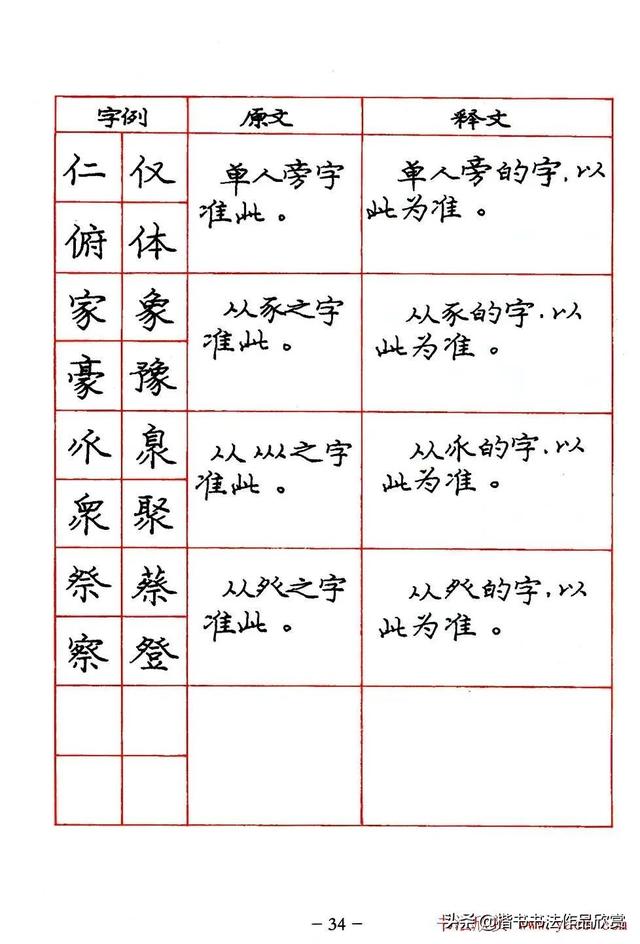 字例 原文 释文
仁 仅
俯 体
单人旁字
准此。
单人旁的字,以
此为准。
家 象
豪 豫
从豕之字
准此。
从豕的字,以
此为准。
众 聚
从 从 之字
准此。
从 的字,以
此为准。
祭 蔡
察 登
从癶之字
准此。
从癶的字,以
此为准。
- 34 -
头条@楷书书法作品欣赏